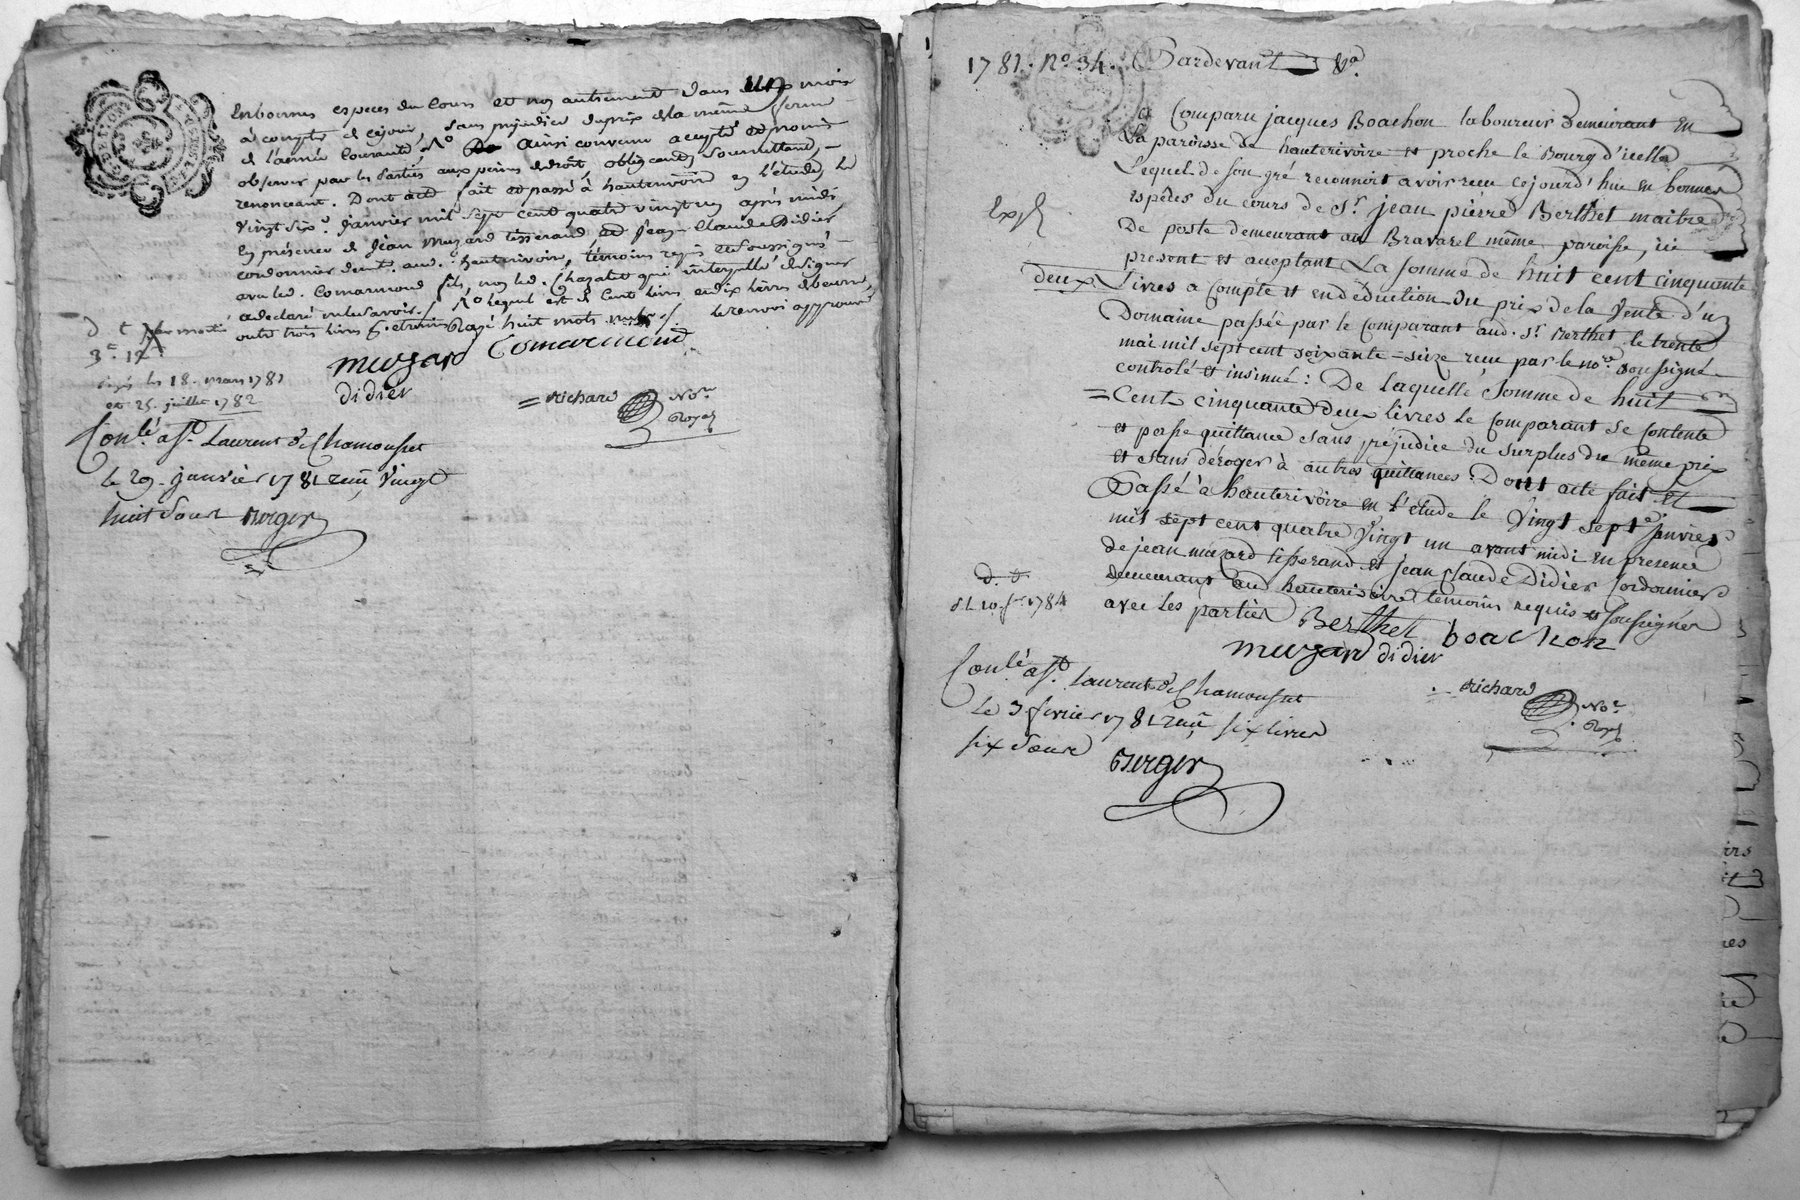 en bonnes especes du Cours et non autrement dans un mois
à compter de cejour, sans préjudice du prix de la même ferme
de l'année Courante, Ro ainsi convenu accepté et promis
observer par les Parties aux peines de droit, obligeant, Soumettant,
renonceant. Dont acte fait et passé à hauterivoire en l'étude, le
vingt six.e Janvier mil sept cent quatre vingt un après midi,
En présence de Jean Muzard tisserand et Jean-Claude Didier
cordonnier dem.t aud. hauterivoire, témoins requis et soussignés
avec led. Comarmond fils, non led. Chazate qui interpellé de signer
a declaré ne le savoir ./ Ro lequel est de Cent livres en dix livres de beurre,
outre trois livres d'etreines Rayé huit mots nuls ./ le renvoi approuvé
d t
3.e 12
muzard Comarmond
didier
= Richard No.re
Royal
exp. les 18. mars 1781
et 25. juillet 1782
Con.lé à S.t Laurent de Chamousset
le 29. janvier 1781 reçu vingt
huit sous Berger
1781. No. 34. Pardevant &a.
a Comparu jacques Boachon laboureur demeurant en
La paroisse de hauterivoire et proche le Bourg d'icelle
Lequel de son gré reconnoit avoir reçu cejourd'hui en bonnes
Exp.
espèces du cours de S.r jean pierre Berthet maitre
De poste demeurant au Bravarel même paroisse, ici
present et acceptant La somme de huit cent cinquante
deux Livres a Compte et en déduction du prix de la Vente d'un
Domaine passée par le Comparant aud. S.r Berthet le trente
mai mil sept cent soixante-seize reçue par le no.re soussigné
controlé et insinué: De laquelle Somme de huit
= Cent cinquante deux livres le Comparant se Contente
et passe quittance sans préjudice du surplus du même prix
et sans déroger à autres quittances. Dont acte fait et
Passé à hauterivoire en l'étude le Vingt sept.e janvier
mil sept cent quatre Vingt un avant midi en presence
de jean muzard tisserand et jean Claude Didier Cordonnier
d. t.
demeurant aud hauterivoire temoins requis et soussignés
dl 10 f.er 1784
avec les parties Berthet boachon
muzard didier
= Richard No.re
Royal
Con.lé à S.t Laurent de Chamousset
le 3 fevrier 1781 reçu six livres
six sous
Berger